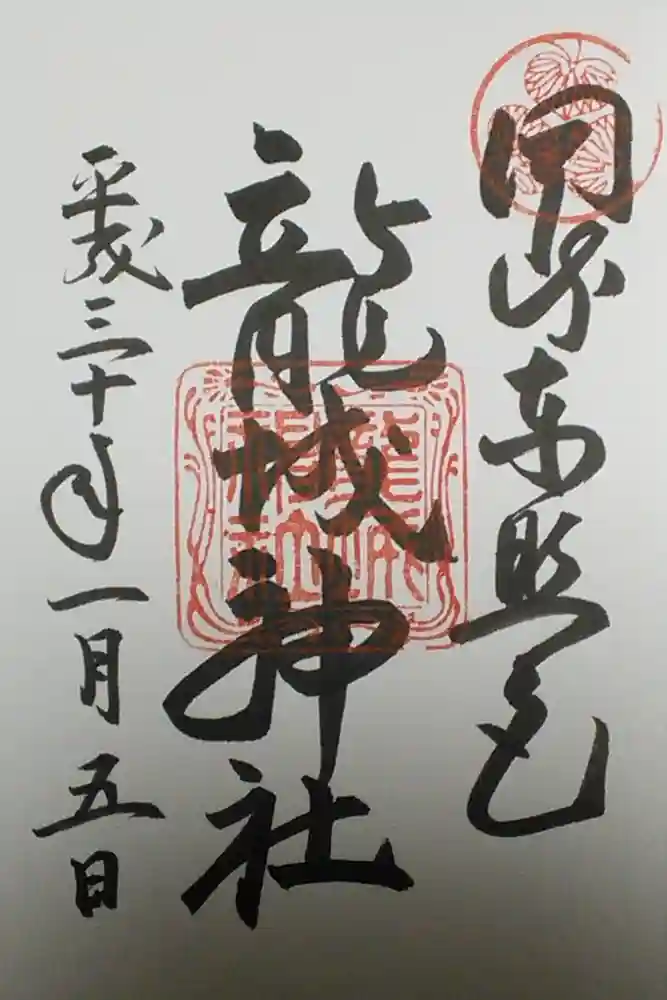 岡崎東照宮
龍城神社
平成三十年一月五日